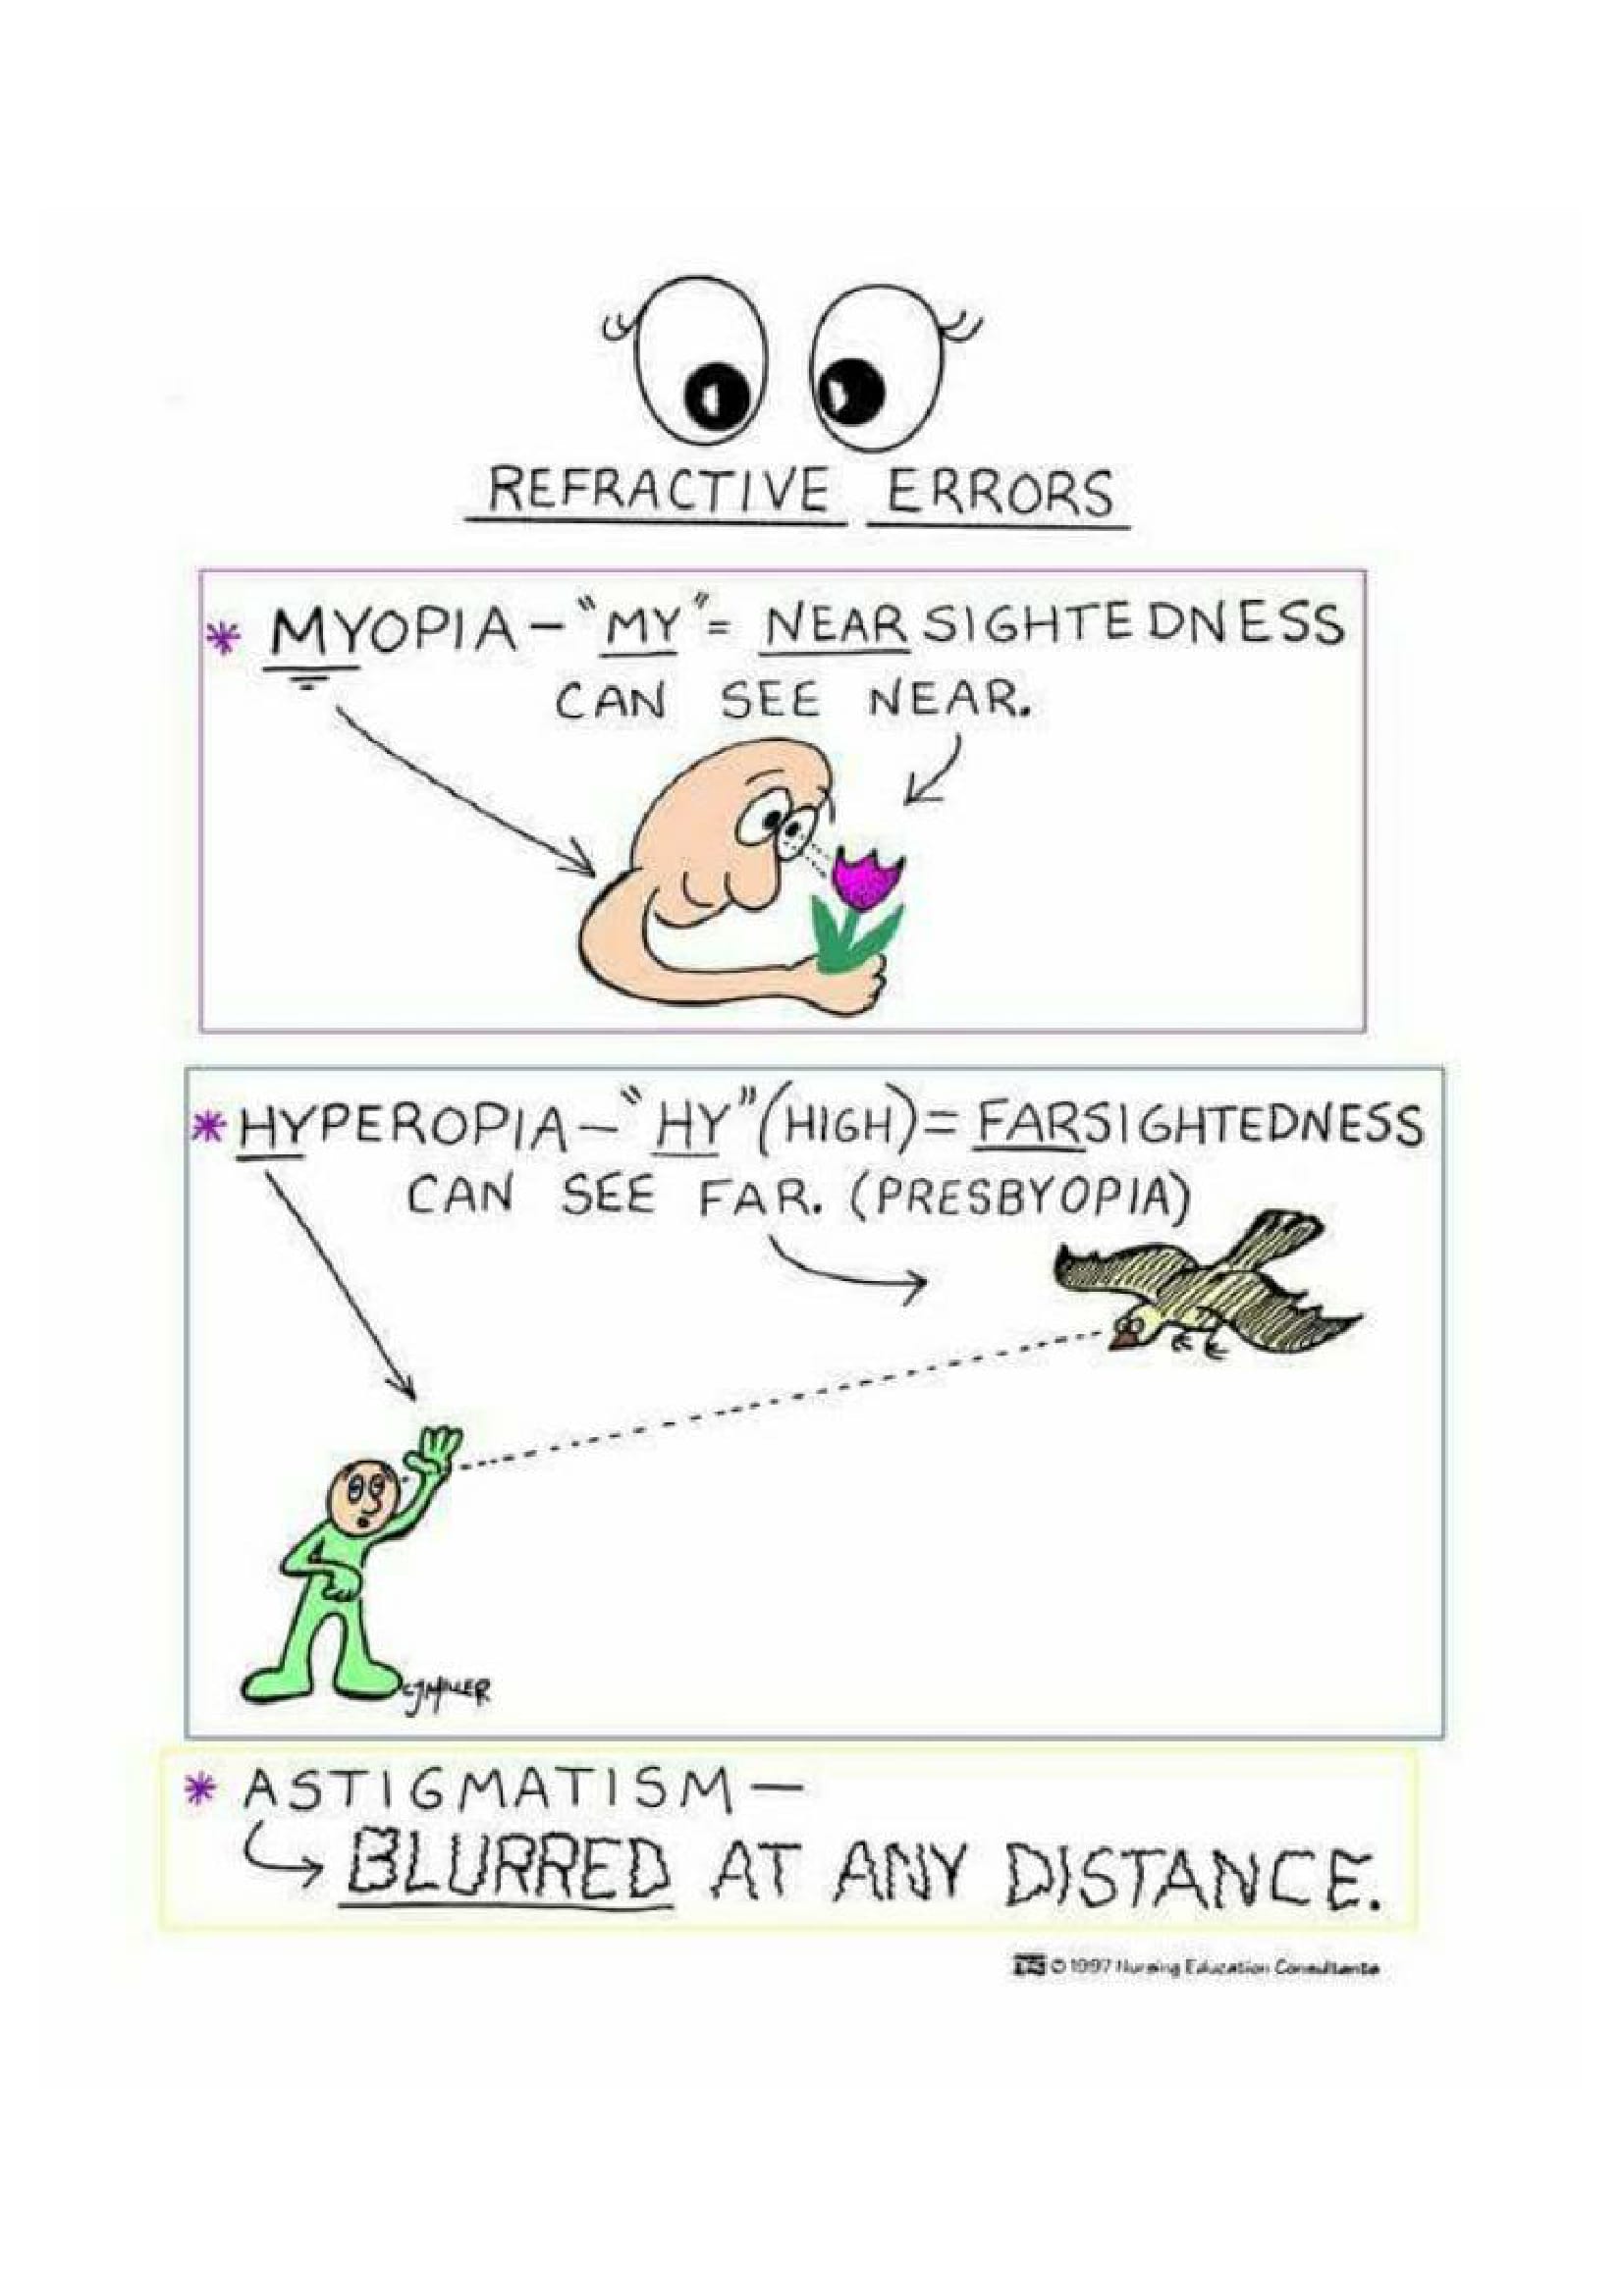 REFRACTIVE ERRORS
* MYOPIA - "MY" = NEARSIGHTEDNESS
CAN SEE NEAR.
* HYPEROPIA - "HY" (HIGH) = FARSIGHTEDNESS
CAN SEE FAR. (PRESBYOPIA)
CJMILLER
* ASTIGMATISM —
BLURRED AT ANY DISTANCE.
© 1997 Nursing Education Consultants